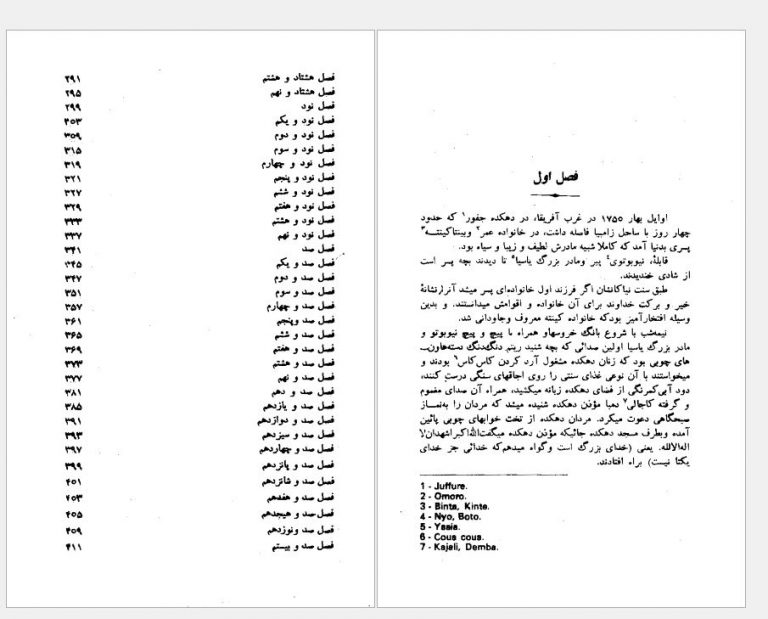 فصل اول
اوایل بهار ۱۷۵۰ در غرب آفریقا، در دهکده جفور۱ که حدود
چهار روز با ساحل زامبیا فاصله داشت، در خانواده عمر۲ وبینتاکینتــه۳
پسری بدنیا آمد که کاملا شبیه مادرش لطیف و زیبا و سیاه بود.
قابلۀ، نیوبوتوی۴ پیر ومادر بزرگ یاسیا۵ تا دیدند بچه پسر است
از شادی خندیدند.
طبق سنت نیاکانشان اگر فرزند اول خانواده‌ای پسر میشد آنرا نشانۀ
خیر و برکت خداوند برای آن خانواده و اقوامش میدانستند. و بدین
وسیله افتخارآمیز بودکه خانواده کینته معروف وجاودانی شد.
نیمه‌شب با شروع بانگ خروسها و همراه با پیچ و پیچ نیوبوتو و
مادر بزرگ یاسیا اولین صدائی که بچه شنید ریتم دنگ‌دنگ دسته‌هاون‌ــ
های چوبی بود که زنان دهکده مشغول آرد کردن کاس‌کاس۶ بودند و
میخواستند با آن نوعی غذای سنتی را روی اجاقهای سنگی درست کنند،
دود آبی‌کمرنگی از فضای دهکده زبانه میکشید، همراه آن صدای مغموم
و گرفته کاجالی۷ دمبا مؤذن دهکده شنیده میشد که مردان را به‌نمــاز
صبحگاهی دعوت میکرد. مردان دهکده از تخت خوابهای چوبی پائین
آمده وبطرف مسجد دهکده جائیکه مؤذن دهکده میگفت‌الله‌اکبر‌اشهدان‌لا
اله‌الالله. یعنی (خدای بزرگ است وگواه میدهم‌که خدائی جز خدای
یکتا نیست) براه افتادند.
1 - Juffure.
2 - Omoro.
3 - Binta, Kinte.
4 - Nyo, Boto.
5 - Yasia.
6 - Cous cous.
7 - Kajali, Demba.
فصل هشتاد و هشتم ۲۹۱
فصل هشتاد و نهم ۲۹۵
فصل نود ۲۹۹
فصل نود و یکم ۳۰۳
فصل نود و دوم ۳۰۹
فصل نود و سوم ۳۱۵
فصل نود و چهارم ۳۱۹
فصل نود و پنجم ۳۲۱
فصل نود و ششم ۳۲۷
فصل نود و هفتم ۳۲۹
فصل نود و هشتم ۳۳۳
فصل نود و نهم ۳۳۷
فصل صد ۳۴۱
فصل صد و یکم ۳۴۵
فصل صد و دوم ۳۴۷
فصل صد و سوم ۳۵۱
فصل صد و چهارم ۳۵۷
فصل صد وپنجم ۳۶۱
فصل صد و ششم ۳۶۵
فصل صد و هفتم ۳۶۹
فصل صد و هشتم ۳۷۳
فصل صد و نهم ۳۷۷
فصل صد و دهم ۳۸۱
فصل صد و یازدهم ۳۸۵
فصل صد و دوازدهم ۳۹۱
فصل صد و سیزدهم ۳۹۳
فصل صد و چهاردهم ۳۹۷
فصل صد و پانزدهم ۳۹۹
فصل صد و شانزدهم ۴۰۱
فصل صد و هفدهم ۴۰۳
فصل صد و هیجدهم ۴۰۵
فصل صد ونوزدهم ۴۰۹
فصل صد و بیستم ۴۱۱